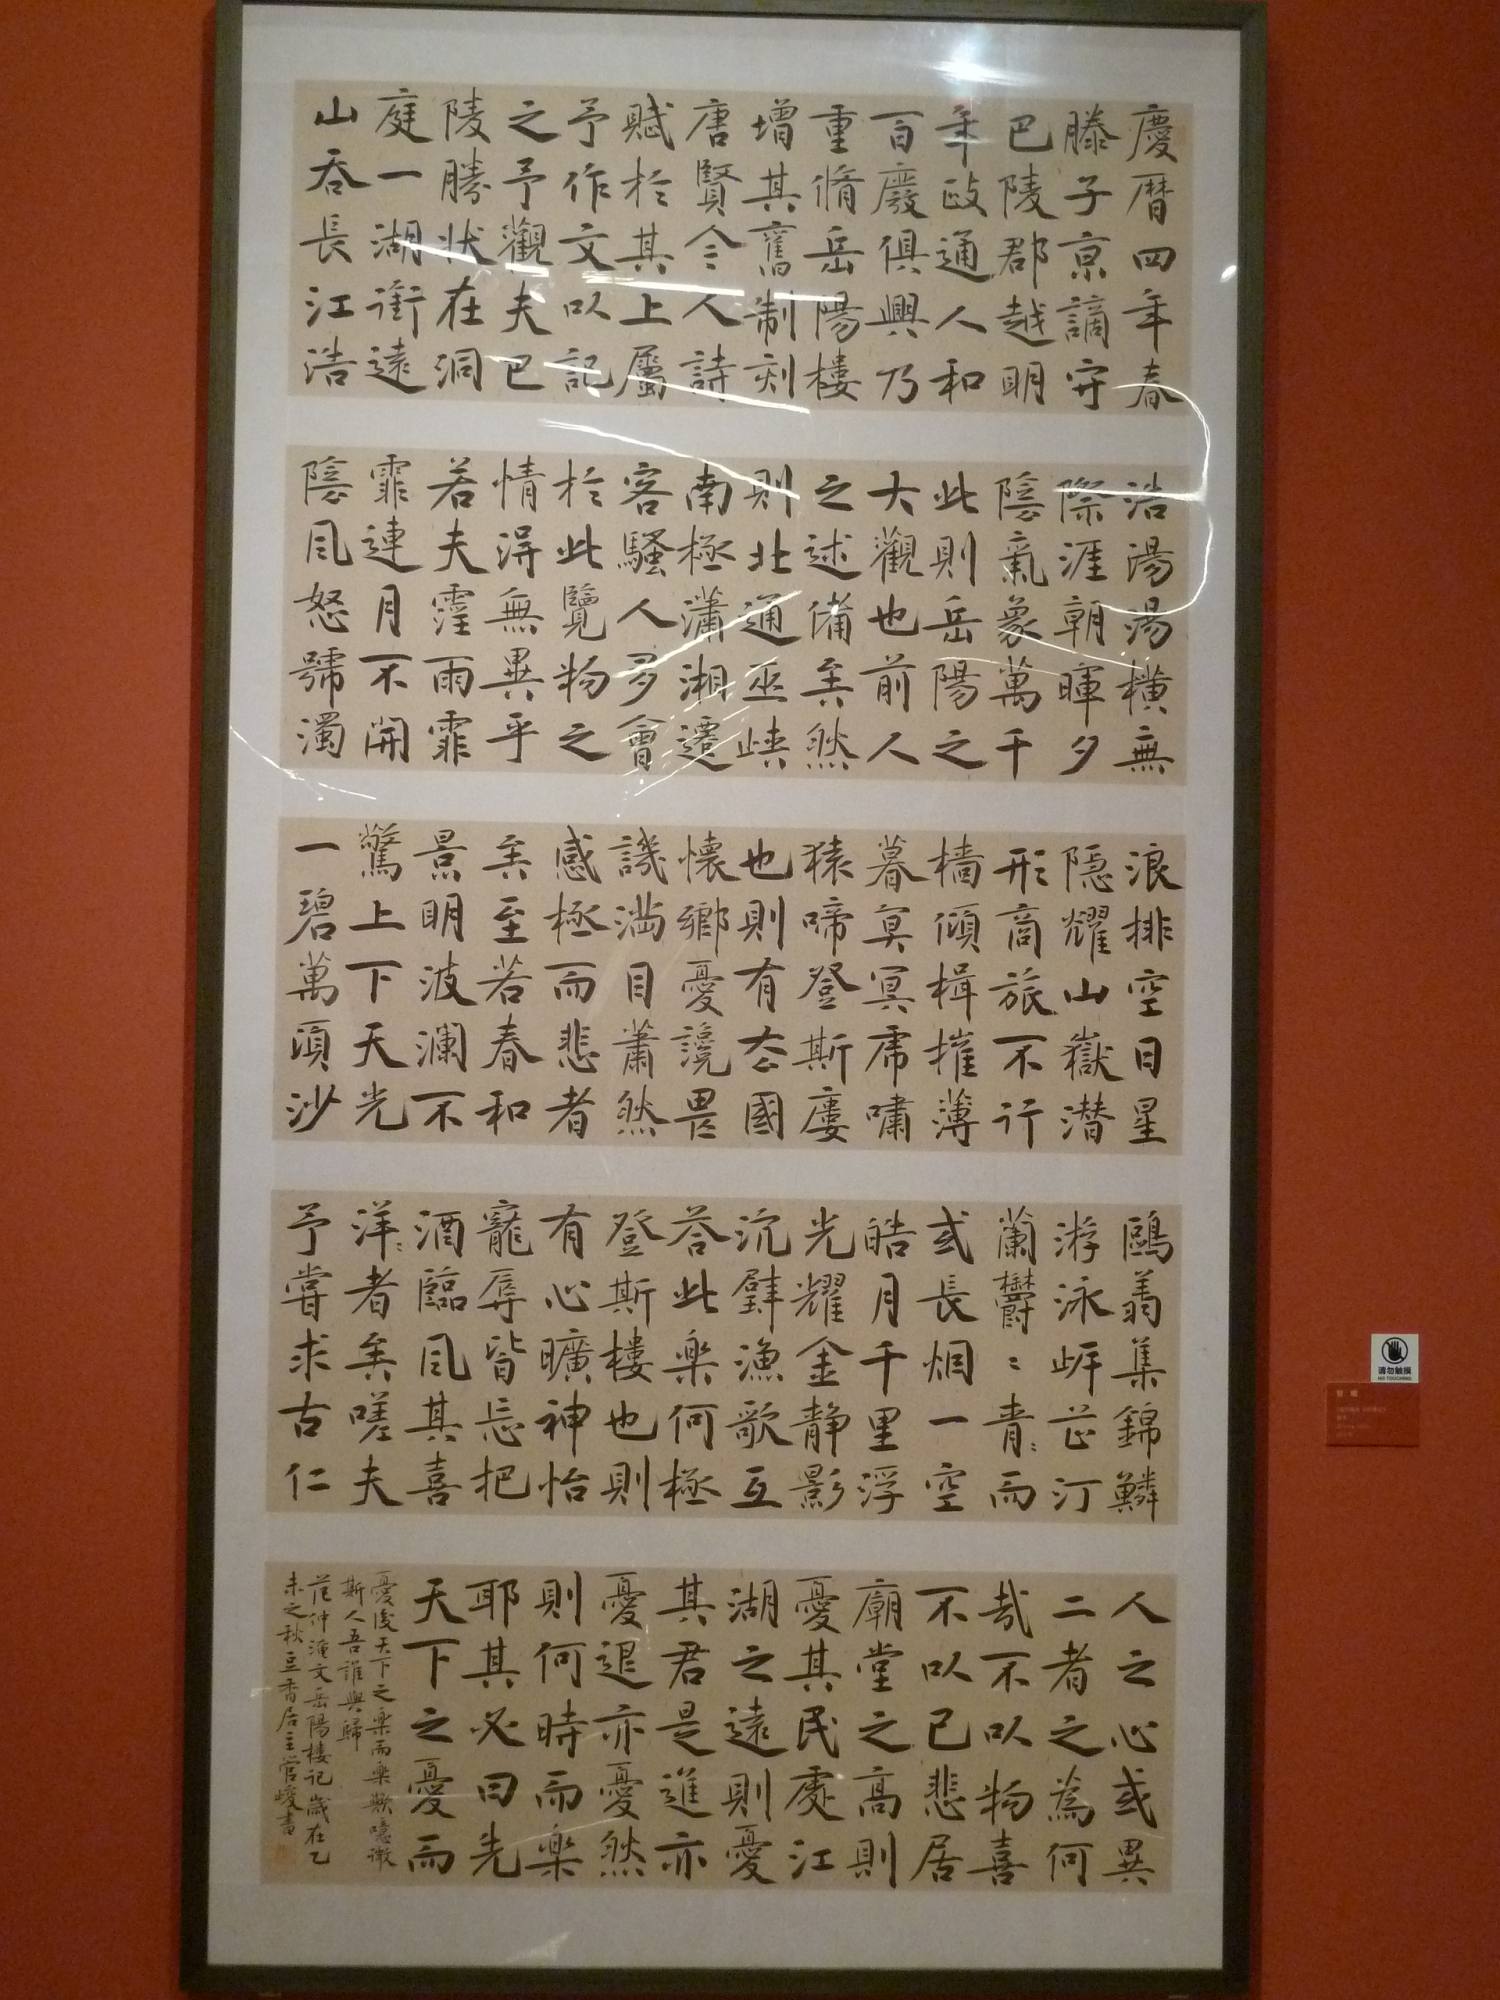 慶曆四年春
滕子京謫守
巴陵郡越明
年政通人和
百廢俱興乃
重脩岳陽樓
增其舊制刻
唐賢今人詩
賦於其上屬
予作文以記
之予觀夫巴
陵勝狀在洞
庭一湖銜遠
山吞長江浩
浩湯湯橫無
際涯朝暉夕
陰氣象萬千
此則岳陽之
大觀也前人
之述備矣然
則北通巫峽
南極瀟湘遷
客騷人多會
於此覽物之
情得無異乎
若夫霪雨霏
霏連月不開
陰風怒號濁
浪排空日星
隱耀山嶽潛
形商旅不行
檣傾楫摧薄
暮冥冥虎嘯
猿啼登斯樓
也則有去國
懷鄉憂讒畏
譏滿目蕭然
感極而悲者
矣至若春和
景明波瀾不
驚上下天光
一碧萬頃沙
鷗翥集錦鱗
游泳岸芷汀
蘭鬱〻青〻而
或長烟一空
皓月千里浮
光耀金靜影
沉璧漁歌互
荅此樂何極
登斯樓也則
有心曠神怡
寵辱皆忘把
酒臨風其喜
洋〻者矣嗟夫
予嘗求古仁
人之心或異
二者之為何
哉不以物喜
不以己悲居
廟堂之高則
憂其民處江
湖之遠則憂
其君是進亦
憂退亦憂然
則何時而樂
耶其必曰先
天下之憂而
憂後天下之樂而樂歟噫微
斯人吾誰與歸
范仲淹文岳陽樓記歲在乙
未之秋豆香居主管峻書
请勿触摸
NO TOUCHING
管峻